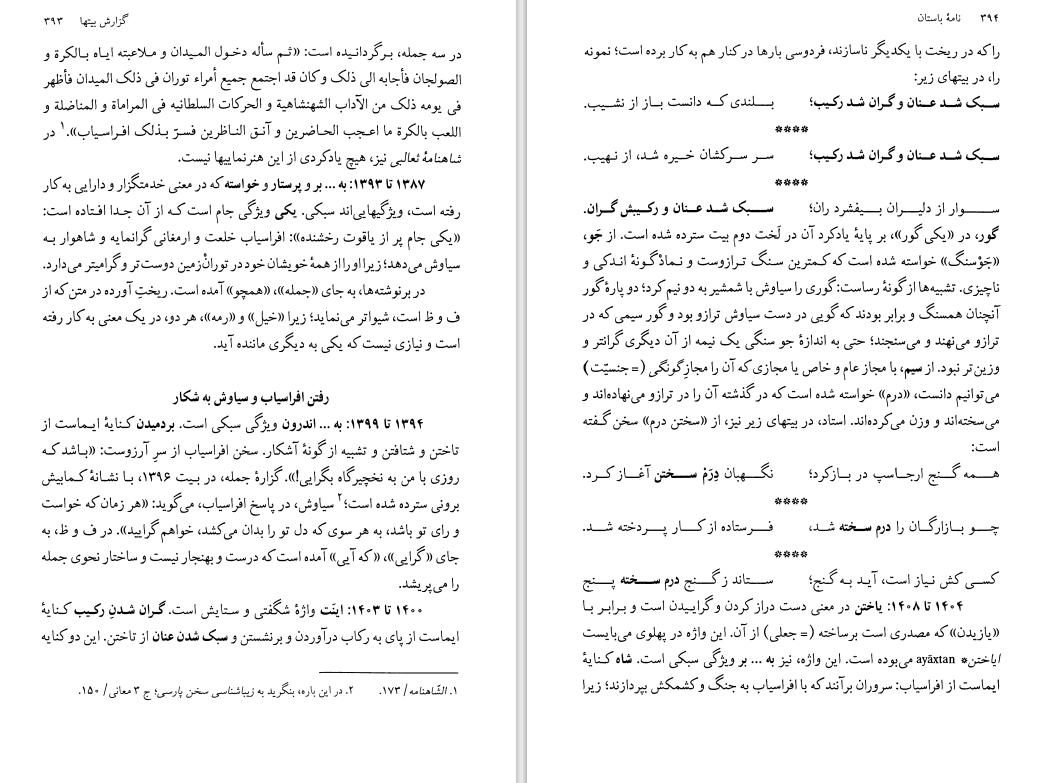 گزارش بیتها ۳۹۳
در سه جمله، برگردانیده است: «ثم سأله دخول المیدان و ملاعبته ایاه بالکرة و
الصولجان فأجابه الی ذلک و کان قد اجتمع جمیع أمراء توران فی ذلک المیدان فأظهر
فی یومه ذلک من الآداب الشهنشاهیة و الحرکات السلطانیه فی المراماة و المناضلة و
اللعب بالکرة ما اعجب الحاضرین و آنق الناظرین فسرّ بذلک افراسیاب».۱ در
شاهنامهٔ ثعالبی نیز، هیچ یادکردی از این هنرنماییها نیست.
۱۳۸۷ تا ۱۳۹۳: به ... بر و پرستار و خواسته که در معنی خدمتگزار و دارایی به کار
رفته است، ویژگیهایی‌اند سبکی. یکی ویژگی جام است که از آن جدا افتاده است:
«یکی جام پر از یاقوت رخشنده»: افراسیاب خلعت و ارمغانی گرانمایه و شاهوار به
سیاوش می‌دهد؛ زیرا او را از همهٔ خویشان خود در توران‌زمین دوست‌تر و گرامیتر می‌دارد.
در برنوشته‌ها، به جای «جمله»، «همچو» آمده است. ریختِ آورده در متن که از
ف و ظ است، شیواتر می‌نماید؛ زیرا «خیل» و «رمه»، هر دو، در یک معنی به کار رفته
است و نیازی نیست که یکی به دیگری ماننده آید.
رفتن افراسیاب و سیاوش به شکار
۱۳۹۴ تا ۱۳۹۹: به ... اندرون ویژگی سبکی است. بردمیدن کنایهٔ ایماست از
تاختن و شتافتن و تشبیه از گونهٔ آشکار. سخن افراسیاب از سرِ آرزوست: «باشد که
روزی با من به نخچیرگاه بگرایی!». گزارهٔ جمله، در بیت ۱۳۹۶، با نشانهٔ کمابیش
برونی سترده شده است؛۲ سیاوش، در پاسخ افراسیاب، می‌گوید: «هر زمان که خواست
و رای تو باشد، به هر سوی که دل تو را بدان می‌کشد، خواهم گرایید». در ف و ظ، به
جای «گرایی»، «که آیی» آمده است که درست و بهنجار نیست و ساختار نحوی جمله
را می‌پریشد.
۱۴۰۰ تا ۱۴۰۳: اینَت واژهٔ شگفتی و ستایش است. گران شدنِ رکیب کنایهٔ
ایماست از پای به رکاب درآوردن و برنشستن و سبک شدن عنان از تاختن. این دو کنایه
۱. الشّاهنامه/ ۱۷۳. ۲. در این باره، بنگرید به زیباشناسی سخن پارسی؛ ج ۳ معانی/ ۱۵۰.
۳۹۴ نامهٔ باستان
را که در ریخت با یکدیگر ناسازند، فردوسی بارها در کنار هم به کار برده است؛ نمونه
را، در بیتهای زیر:
سبک شد عنان و گران شد رکیب؛ بلندی که دانست باز از نشیب.
****
سبک شد عنان و گران شد رکیب؛ سر سرکشان خیره شد، از نهیب.
****
سوار از دلیران بیفشرد ران؛ سبک شد عنان و رکیبش گران.
گور، در «یکی گور»، بر پایهٔ یادکرد آن در لَخت دوم بیت سترده شده است. از جَو،
«جَوْسنگ» خواسته شده است که کمترین سنگ ترازوست و نمادگونهٔ اندکی و
ناچیزی. تشبیه‌ها از گونهٔ رساست: گوری را سیاوش با شمشیر به دو نیم کرد؛ دو پارهٔ گور
آنچنان همسنگ و برابر بودند که گویی در دست سیاوش ترازو بود و گور سیمی که در
ترازو می‌نهند و می‌سنجند؛ حتی به اندازهٔ جو سنگی یک نیمه از آن دیگری گرانتر و
وزین‌تر نبود. از سیم، با مجاز عام و خاص یا مجازی که آن را مجازِ گونگی (= جنسیّت)
می‌توانیم دانست، «درم» خواسته شده است که در گذشته آن را در ترازو می‌نهاده‌اند و
می‌سخته‌اند و وزن می‌کرده‌اند. استاد، در بیتهای زیر نیز، از «سختن درم» سخن گفته
است:
همه گنج ارجاسپ در باز کرد؛ نگهبان دِرَمْ سختن آغاز کرد.
****
چو بازارگان را درم سخته شد، فرستاده از کار پردخته شد.
****
کسی کش نیاز است، آید به گنج؛ ستاند ز گنج درم سخته پنج
۱۴۰۴ تا ۱۴۰۸: یاختن در معنی دست دراز کردن و گراییدن است و برابر با
«یازیدن» که مصدری است برساخته (= جعلی) از آن. این واژه در پهلوی می‌بایست
ایاختن* ayāxtan می‌بوده است. این واژه، نیز به ... بر ویژگی سبکی است. شاه کنایهٔ
ایماست از افراسیاب: سروران برآنند که با افراسیاب به جنگ و کشمکش بپردازند؛ زیرا